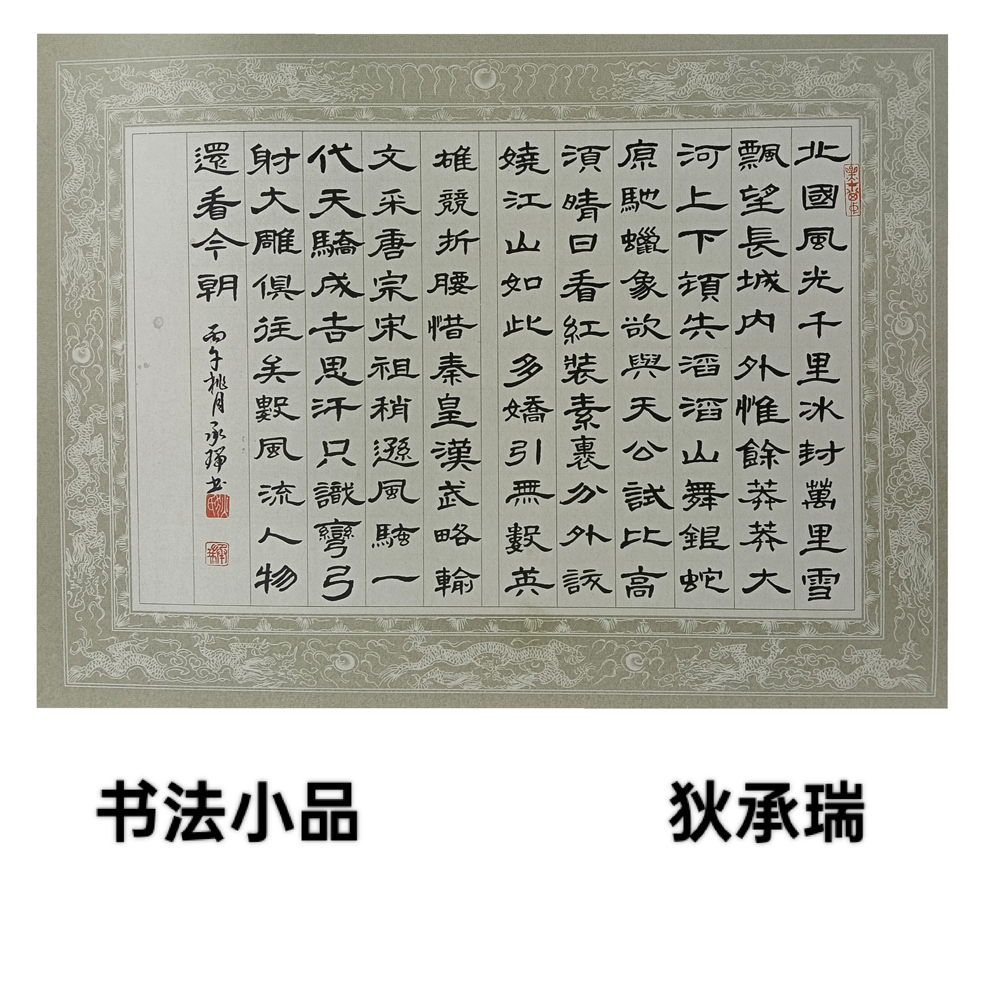 北國風光千里冰封萬里雪
飄望長城内外惟餘莽莽大
河上下頓失滔滔山舞銀蛇
原馳蠟象欲與天公試比高
須晴日看紅裝素裹分外
嬈江山如此多嬌引無數英
雄競折腰惜秦皇漢武略輸
文采唐宗宋祖稍遜風騷一
代天驕成吉思汗只識彎弓
射大雕俱往矣數風流人物
還看今朝
丙午桃月承瑞书
书法小品
狄承瑞